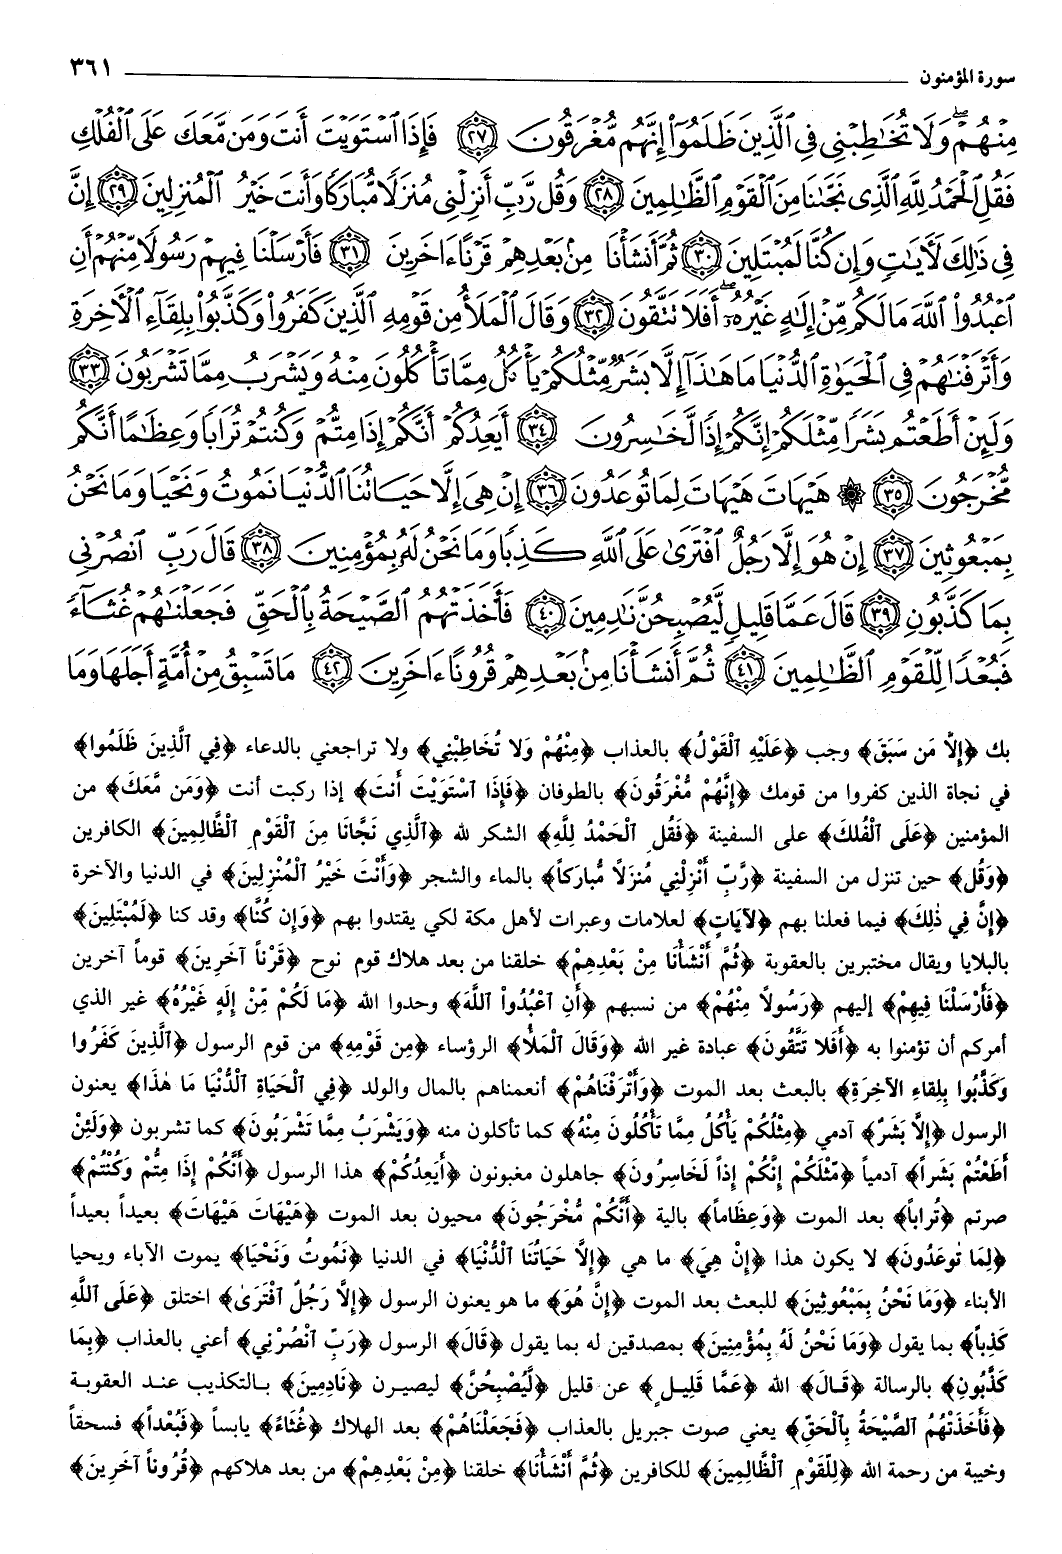 سورة المؤمنون ٣٦١
مِنْهُمْ ۖ وَلَا تُخَاطِبْنِي فِي الَّذِينَ ظَلَمُوا إِنَّهُم مُّغْرَقُونَ ٢٧ فَإِذَا اسْتَوَيْتَ أَنتَ وَمَن مَّعَكَ عَلَى الْفُلْكِ
فَقُلِ الْحَمْدُ لِلَّهِ الَّذِي نَجَّانَا مِنَ الْقَوْمِ الظَّالِمِينَ ٢٨ وَقُل رَّبِّ أَنزِلْنِي مُنزَلًا مُّبَارَكًا وَأَنتَ خَيْرُ الْمُنزِلِينَ ٢٩ إِنَّ
فِي ذَٰلِكَ لَآيَاتٍ وَإِن كُنَّا لَمُبْتَلِينَ ٣٠ ثُمَّ أَنشَأْنَا مِن بَعْدِهِمْ قَرْنًا آخَرِينَ ٣١ فَأَرْسَلْنَا فِيهِمْ رَسُولًا مِّنْهُمْ أَنِ
اعْبُدُوا اللَّهَ مَا لَكُم مِّنْ إِلَٰهٍ غَيْرُهُ ۖ أَفَلَا تَتَّقُونَ ٣٢ وَقَالَ الْمَلَأُ مِن قَوْمِهِ الَّذِينَ كَفَرُوا وَكَذَّبُوا بِلِقَاءِ الْآخِرَةِ
وَأَتْرَفْنَاهُمْ فِي الْحَيَاةِ الدُّنْيَا مَا هَٰذَا إِلَّا بَشَرٌ مِّثْلُكُمْ يَأْكُلُ مِمَّا تَأْكُلُونَ مِنْهُ وَيَشْرَبُ مِمَّا تَشْرَبُونَ ٣٣
وَلَئِنْ أَطَعْتُم بَشَرًا مِّثْلَكُمْ إِنَّكُمْ إِذًا لَّخَاسِرُونَ ٣٤ أَيَعِدُكُمْ أَنَّكُمْ إِذَا مِتُّمْ وَكُنتُمْ تُرَابًا وَعِظَامًا أَنَّكُم
مُّخْرَجُونَ ٣٥ ۞ هَيْهَاتَ هَيْهَاتَ لِمَا تُوعَدُونَ ٣٦ إِنْ هِيَ إِلَّا حَيَاتُنَا الدُّنْيَا نَمُوتُ وَنَحْيَا وَمَا نَحْنُ
بِمَبْعُوثِينَ ٣٧ إِنْ هُوَ إِلَّا رَجُلٌ افْتَرَىٰ عَلَى اللَّهِ كَذِبًا وَمَا نَحْنُ لَهُ بِمُؤْمِنِينَ ٣٨ قَالَ رَبِّ انصُرْنِي
بِمَا كَذَّبُونِ ٣٩ قَالَ عَمَّا قَلِيلٍ لَّيُصْبِحُنَّ نَادِمِينَ ٤٠ فَأَخَذَتْهُمُ الصَّيْحَةُ بِالْحَقِّ فَجَعَلْنَاهُمْ غُثَاءً
فَبُعْدًا لِّلْقَوْمِ الظَّالِمِينَ ٤١ ثُمَّ أَنشَأْنَا مِن بَعْدِهِمْ قُرُونًا آخَرِينَ ٤٢ مَا تَسْبِقُ مِنْ أُمَّةٍ أَجَلَهَا وَمَا
بك ﴿إِلَّا مَن سَبَقَ﴾ وجب ﴿عَلَيْهِ ٱلْقَوْلُ﴾ بالعذاب ﴿مِنْهُمْ وَلا تُخَاطِبْنِي﴾ ولا تراجعني بالدعاء ﴿فِي ٱلَّذِينَ ظَلَمُوا﴾
في نجاة الذين كفروا من قومك ﴿إِنَّهُمْ مُّغْرَقُونَ﴾ بالطوفان ﴿فَإِذَا ٱسْتَوَيْتَ أَنتَ﴾ إذا ركبت أنت ﴿وَمَن مَّعَكَ﴾ من
المؤمنين ﴿عَلَى ٱلْفُلكَ﴾ على السفينة ﴿فَقُلِ ٱلْحَمْدُ لِلَّهِ﴾ الشكر لله ﴿ٱلَّذِي نَجَّانَا مِنَ ٱلْقَوْمِ ٱلظَّالِمِينَ﴾ الكافرين
﴿وَقُل﴾ حين تنزل من السفينة ﴿رَّبِّ أَنْزِلْنِي مُنزَلاً مُّبارَكاً﴾ بالماء والشجر ﴿وَأَنْتَ خَيْرُ ٱلْمُنْزِلِينَ﴾ في الدنيا والآخرة
﴿إِنَّ فِي ذٰلِكَ﴾ فيما فعلنا بهم ﴿لآيَاتٍ﴾ لعلامات وعبرات لأهل مكة لكي يقتدوا بهم ﴿وَإِن كُنَّا﴾ وقد كنا ﴿لَمُبْتَلِينَ﴾
بالبلايا ويقال مختبرين بالعقوبة ﴿ثُمَّ أَنْشَأْنَا مِنْ بَعْدِهِمْ﴾ خلقنا من بعد هلاك قوم نوح ﴿قَرْناً آخَرِينَ﴾ قوماً آخرين
﴿فَأَرْسَلْنَا فِيهِمْ﴾ إليهم ﴿رَسُولاً مِنْهُمْ﴾ من نسبهم ﴿أَنِ ٱعْبُدُواْ ٱللَّهَ﴾ وحدوا الله ﴿مَا لَكُمْ مِّنْ إِلَهٍ غَيْرُهُ﴾ غير الذي
أمركم أن تؤمنوا به ﴿أَفَلا تَتَّقُونَ﴾ عبادة غير الله ﴿وَقَالَ ٱلْمَلأُ﴾ الرؤساء ﴿مِن قَوْمِهِ﴾ من قوم الرسول ﴿ٱلَّذِينَ كَفَرُوا
وَكَذَّبُوا بِلِقاءِ الآخِرَةِ﴾ بالبعث بعد الموت ﴿وَأَتْرَفْنَاهُمْ﴾ أنعمناهم بالمال والولد ﴿فِي ٱلْحَيَاةِ ٱلدُّنْيَا مَا هٰذَا﴾ يعنون
الرسول ﴿إِلَّا بَشَرٌ﴾ آدمي ﴿مِثْلُكُمْ يَأْكُلُ مِمَّا تَأْكُلُونَ مِنْهُ﴾ كما تأكلون منه ﴿وَيَشْرَبُ مِمَّا تَشْرَبُونَ﴾ كما تشربون ﴿وَلَئِنْ
أَطَعْتُمْ بَشَراً﴾ آدمياً ﴿مِّثْلَكُمْ إِنَّكُمْ إِذاً لَخَاسِرُونَ﴾ جاهلون مغبونون ﴿أَيَعِدُكُمْ﴾ هذا الرسول ﴿أَنَّكُمْ إِذَا مِتُّمْ وَكُنْتُمْ﴾
صرتم ﴿تُراباً﴾ بعد الموت ﴿وَعِظَاماً﴾ بالية ﴿أَنَّكُمْ مُّخْرَجُونَ﴾ محيون بعد الموت ﴿هَيْهَاتَ هَيْهَاتَ﴾ بعيداً بعيداً
﴿لِمَا تُوعَدُونَ﴾ لا يكون هذا ﴿إِنْ هِيَ﴾ ما هي ﴿إِلَّا حَيَاتُنَا ٱلدُّنْيَا﴾ في الدنيا ﴿نَمُوتُ وَنَحْيَا﴾ يموت الآباء ويحيا
الأبناء ﴿وَمَا نَحْنُ بِمَبْعُوثِينَ﴾ للبعث بعد الموت ﴿إِنْ هُوَ﴾ ما هو يعنون الرسول ﴿إِلَّا رَجُلٌ ٱفْتَرَىٰ﴾ اختلق ﴿عَلَى ٱللَّهِ
كَذِباً﴾ بما يقول ﴿وَمَا نَحْنُ لَهُ بِمُؤْمِنِينَ﴾ بمصدقين له بما يقول ﴿قَالَ﴾ الرسول ﴿رَبِّ ٱنْصُرْنِي﴾ أعني بالعذاب ﴿بِمَا
كَذَّبُونِ﴾ بالرسالة ﴿قَالَ﴾ الله ﴿عَمَّا قَلِيلٍ﴾ عن قليل ﴿لَّيُصْبِحُنَّ﴾ ليصيرن ﴿نَادِمِينَ﴾ بالتكذيب عند العقوبة
﴿فَأَخَذَتْهُمُ ٱلصَّيْحَةُ بِٱلْحَقِّ﴾ يعني صوت جبريل بالعذاب ﴿فَجَعَلْنَاهُمْ﴾ بعد الهلاك ﴿غُثَاءً﴾ يابساً ﴿فَبُعْداً﴾ فسحقاً
وخيبة من رحمة الله ﴿لِلْقَوْمِ ٱلظَّالِمِينَ﴾ للكافرين ﴿ثُمَّ أَنْشَأْنَا﴾ خلقنا ﴿مِنْ بَعْدِهِمْ﴾ من بعد هلاكهم ﴿قُرُوناً آخَرِينَ﴾